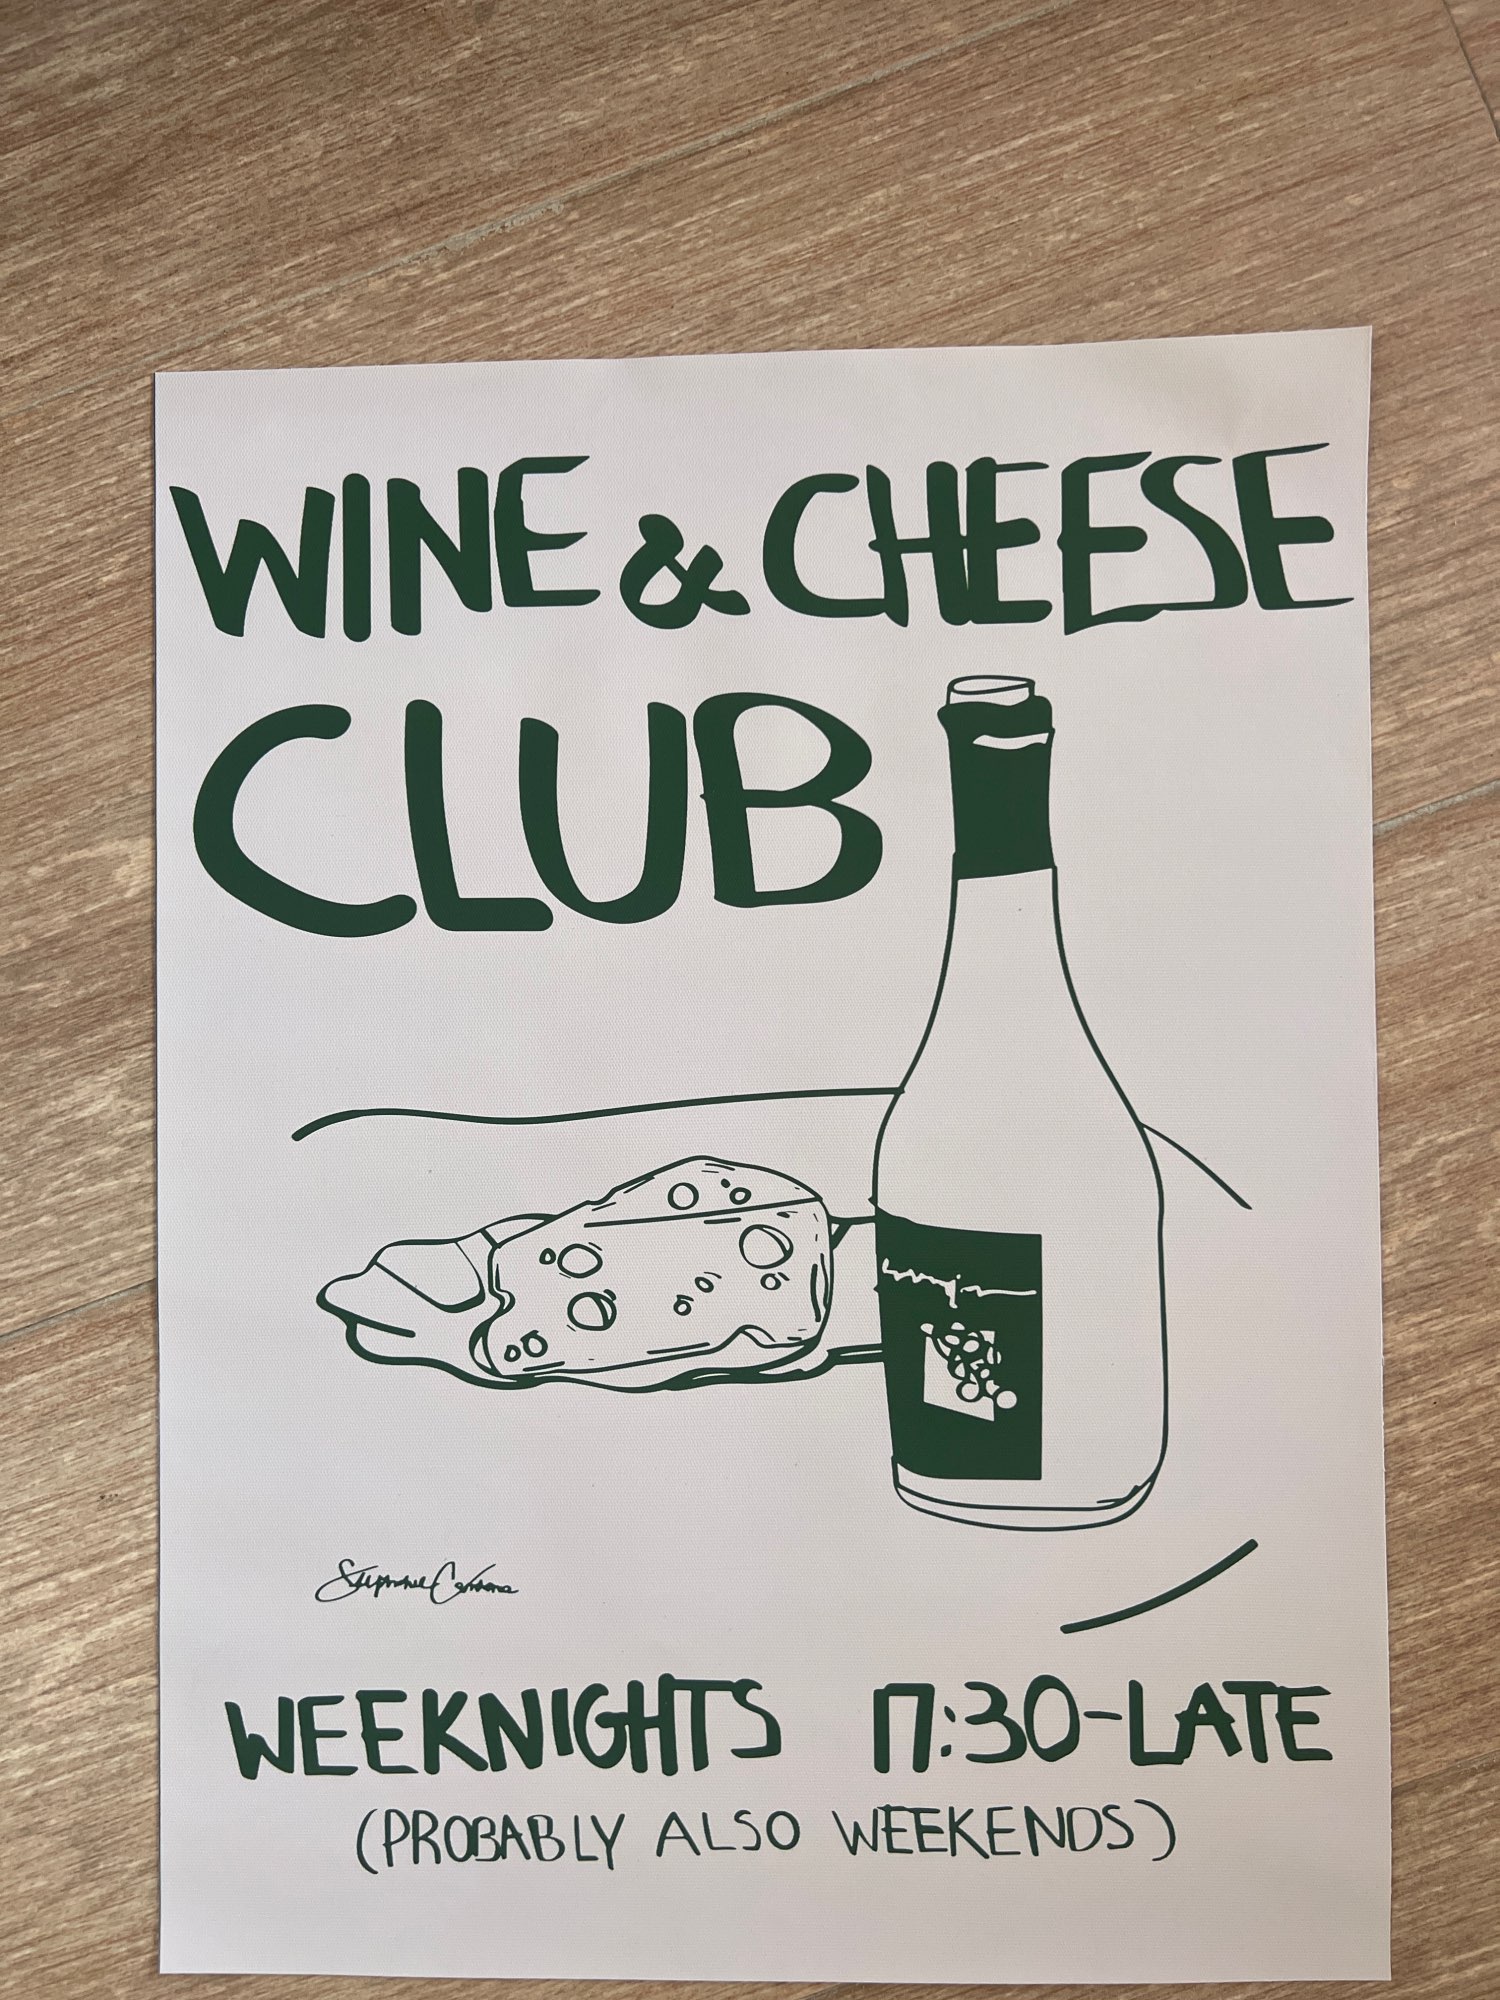 WINE & CHEESE
CLUB
WEEKNIGHTS 17:30-LATE
(PROBABLY ALSO WEEKENDS)